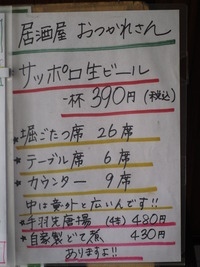 居酒屋 おつかれさん
サッポロ生ビール
一杯 390円(税込)
・堀ごたつ席 26席
★テーブル席 6席
★カウンター 9席
中は意外と広いんです!!
★手羽先唐揚 (4本) 480円
★自家製どて煮 430円
ありますよ!!